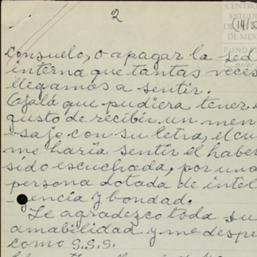 2
CENTRO
(14/3
consuelo, o apagar la sed
interna que tantas veces
llegamos a sentir.
Ojalá que pudiera tener
gusto de recibir un men
saje con su letra, el cu
me haría sentir el haber
sido escuchada, por una
persona dotada de intel
gencia y bondad.
Le agradezco toda su
amabilidad y me despi
como S.S.S.